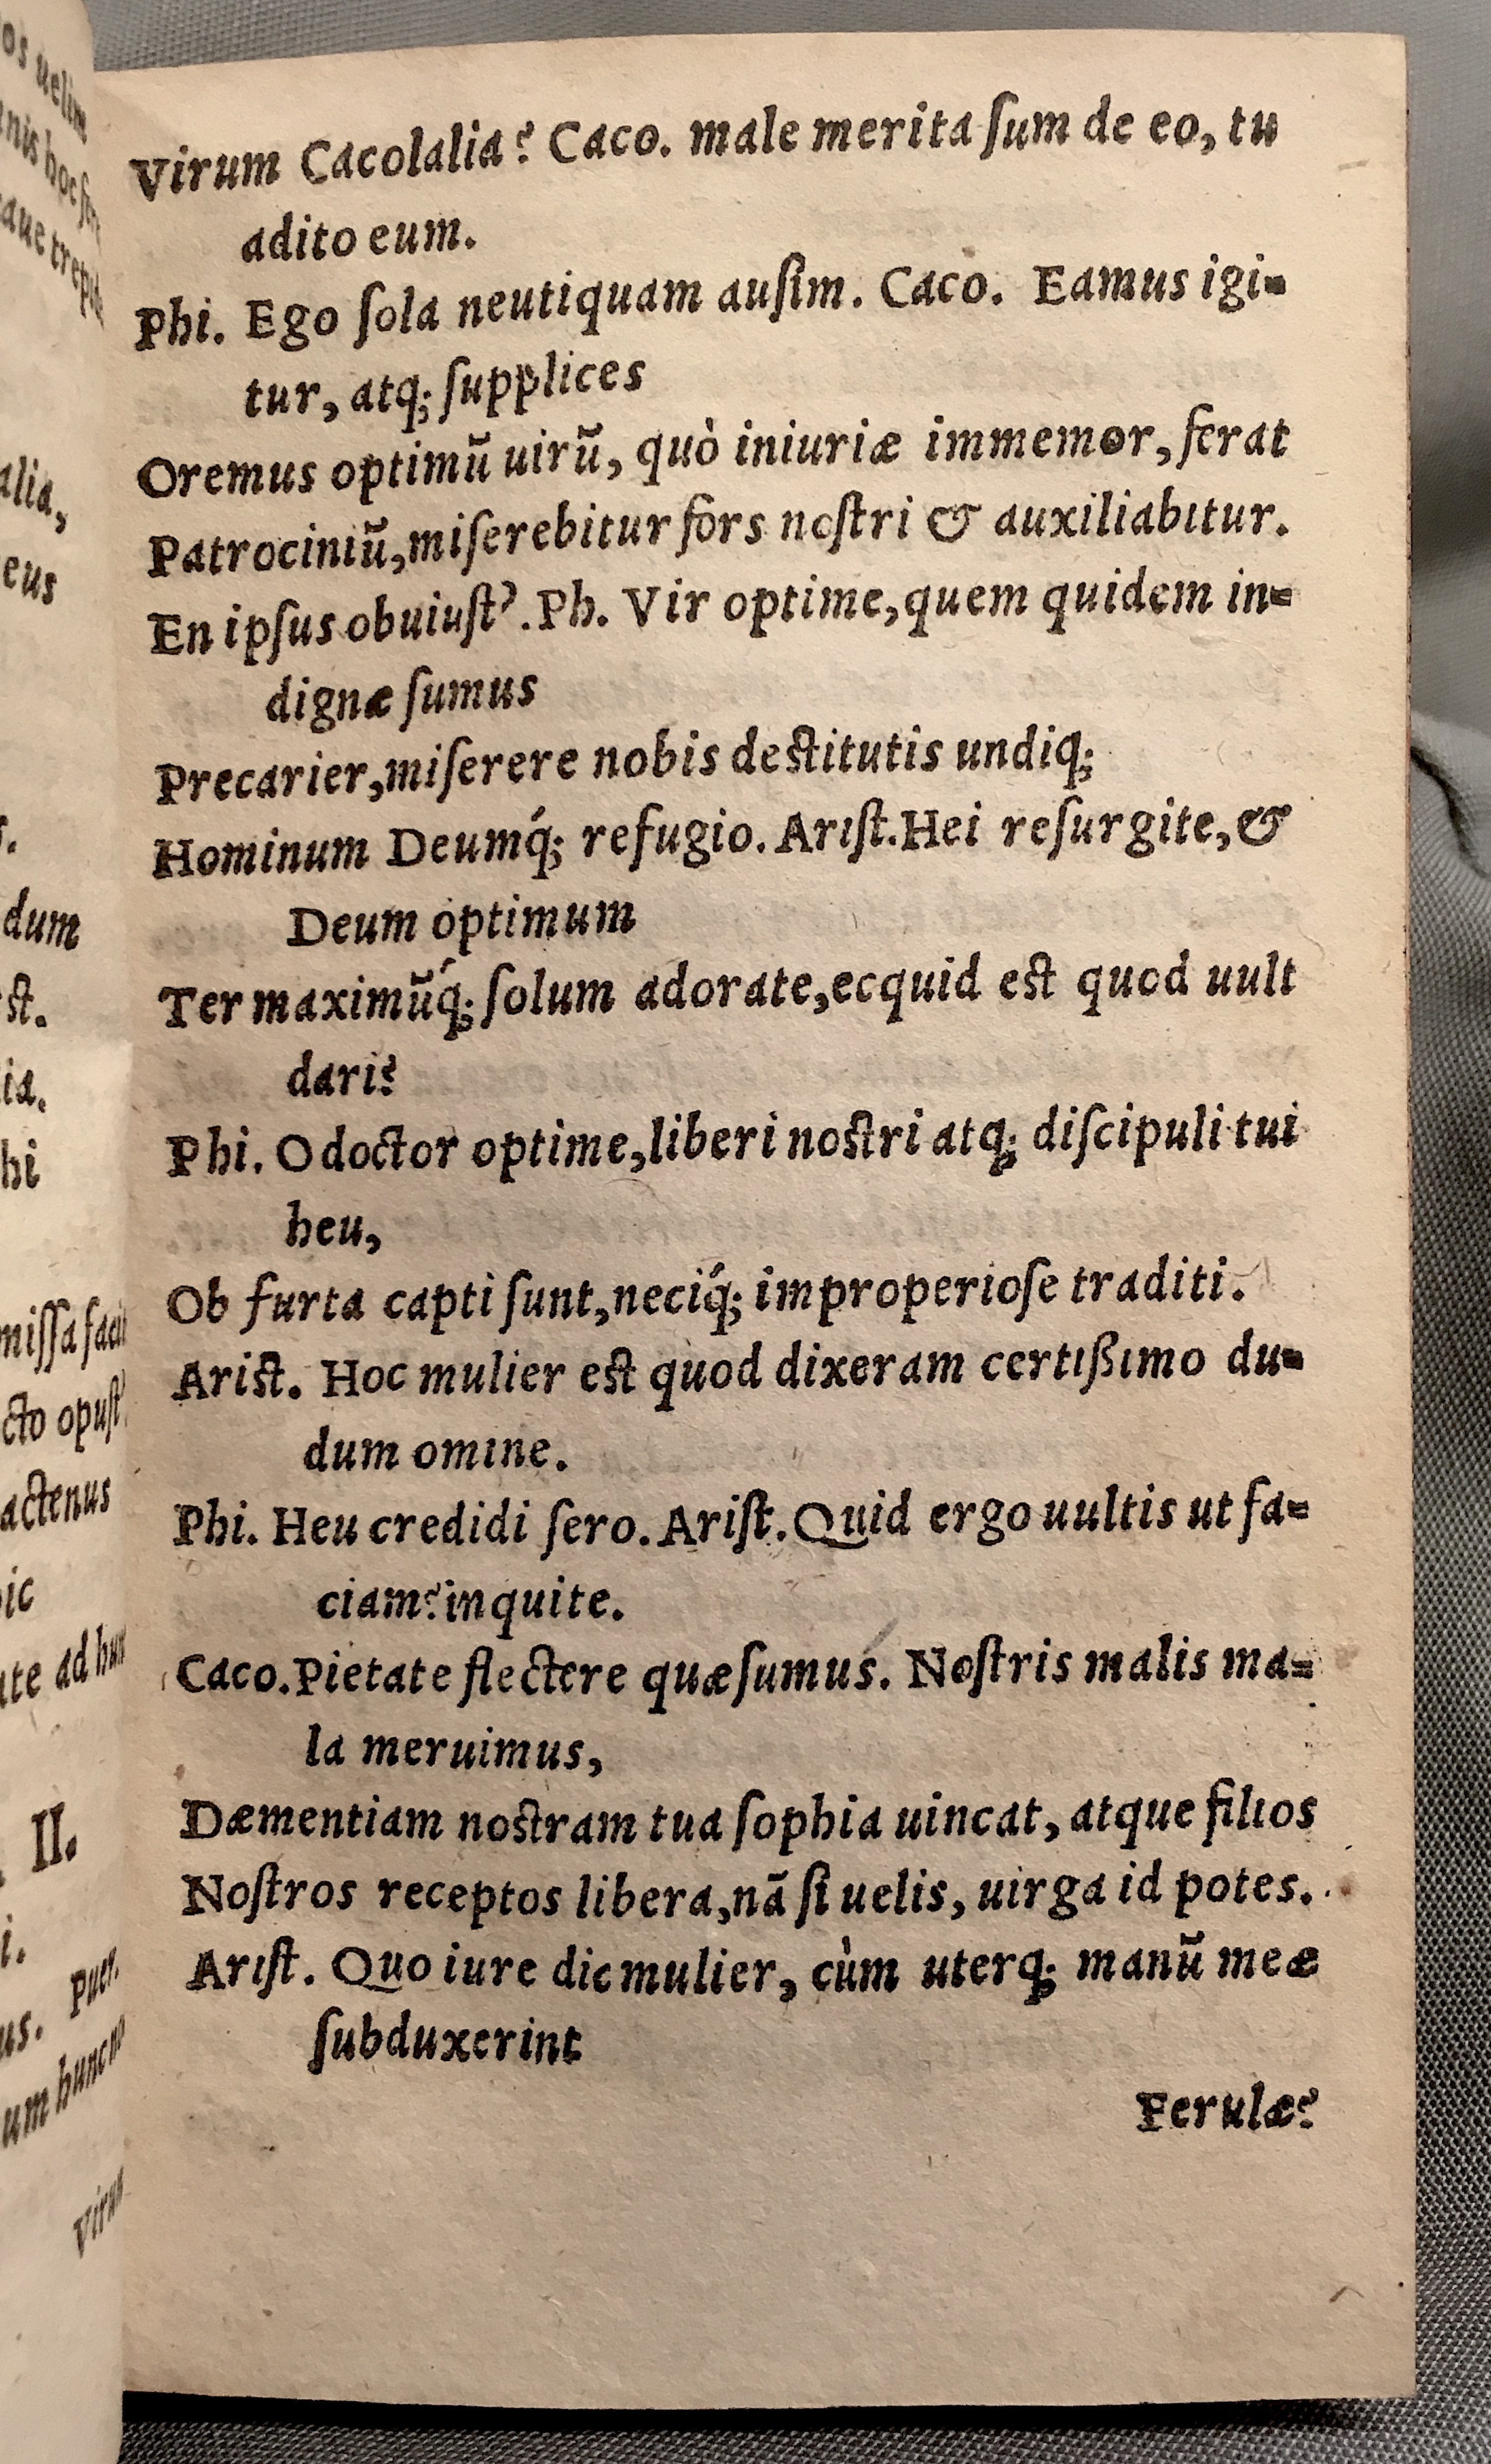 Virum Cacolalia? Caco. male merita ſum de eo, tu
adito eum.
Phi. Ego ſola neutiquam auſim. Caco. Eamus igi=
tur, atq; ſupplices
Oremus optimũ uirũ, quò iniuriæ immemor, ferat
Patrociniũ, miſerebitur fors noſtri & auxiliabitur.
En ipſus obuiuſt'. Ph. Vir optime, quem quidem in=
dignæ ſumus
Precarier, miſerere nobis deſtitutis undiq;
Hominum Deumq́; refugio. Ariſt. Hei reſurgite, &
Deum optimum
Ter maximũq́; ſolum adorate, ecquid eſt quod uult
dari?
Phi. O doctor optime, liberi noſtri atq; diſcipuli tui
heu,
Ob furta capti ſunt, neciq́; improperioſe traditi.
Ariſt. Hoc mulier eſt quod dixeram certißimo du=
dum omine.
Phi. Heu credidi ſero. Ariſt. Quid ergo uultis ut fa=
ciam? inquite.
Caco. Pietate flectere quæſumus. Noſtris malis ma=
la meruimus,
Dæmentiam noſtram tua ſophia uincat, atque filios
Noſtros receptos libera, nã ſi uelis, uirga id potes.
Ariſt. Quo iure dic mulier, cùm uterq; manũ meæ
ſubduxerint
Ferulæ?
os uelim
nis hoc
aue
alia,
eus
dum
ſt.
ia.
hi
miſſa
cto opuſt'
actenus
ic
ad
II.
i.
us. Puer.
um hunc